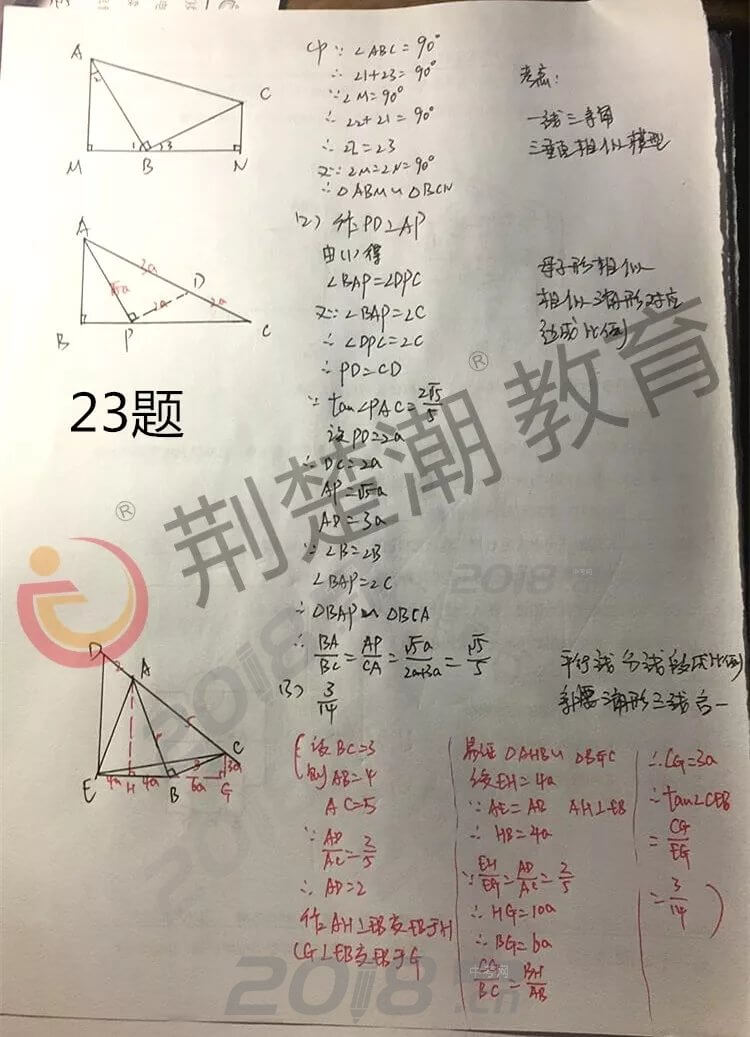 (1) ∵ ∠ABC = 90°
∴ ∠1+∠3 = 90°
∵ ∠M = 90°
∴ ∠2+∠1 = 90°
∴ ∠2 = ∠3
又∵ ∠M = ∠N = 90°
∴ △ABM ∽ △BCN
考点:
一线三等角
三垂直相似模型
A
C
M
1
B
2 3
N
(2) 作PD⊥AP
由(1)得
∠BAP=∠DPC
又∵ ∠BAP=∠C
∴ ∠DPC=∠C
∴ PD=CD
∵ tan∠PAC = 2√5/5
设PD=2a
∴ DC=2a
AP=√5a
AD=3a
∵ ∠B=∠B
∠BAP=∠C
∴ △BAP ∽ △BCA
∴ BA/BC = AP/CA = √5a/2a+3a = √5/5
母子形相似
相似三角形对应
边成比例
A
3a
√5a
D
2a
2a
B
P
C
23题
荆楚潮教育
®
®
2018
中考网
(3) 3/14
平行线分线段成比例
等腰三角形三线合一
D
2
A
C
3
3a
E
4a
H
4a
B
6a
G
设BC=3
则AB=4
AC=5
∵ AD/AC = 2/5
∴ AD=2
作AH⊥EB交EB于H
CG⊥EB交EB于G
易证 △AHB ∽ △BGC
设EH=4a
∵ AE=AB AH⊥EB
∴ HB=4a
∵ EH/EG = AD/AC = 2/5
∴ HG=10a
∴ BG=6a
CG/BC = BH/AB
∴ CG=3a
∴ tan∠CEB
= CG/EG
= 3/14
中考网
2018
.cn